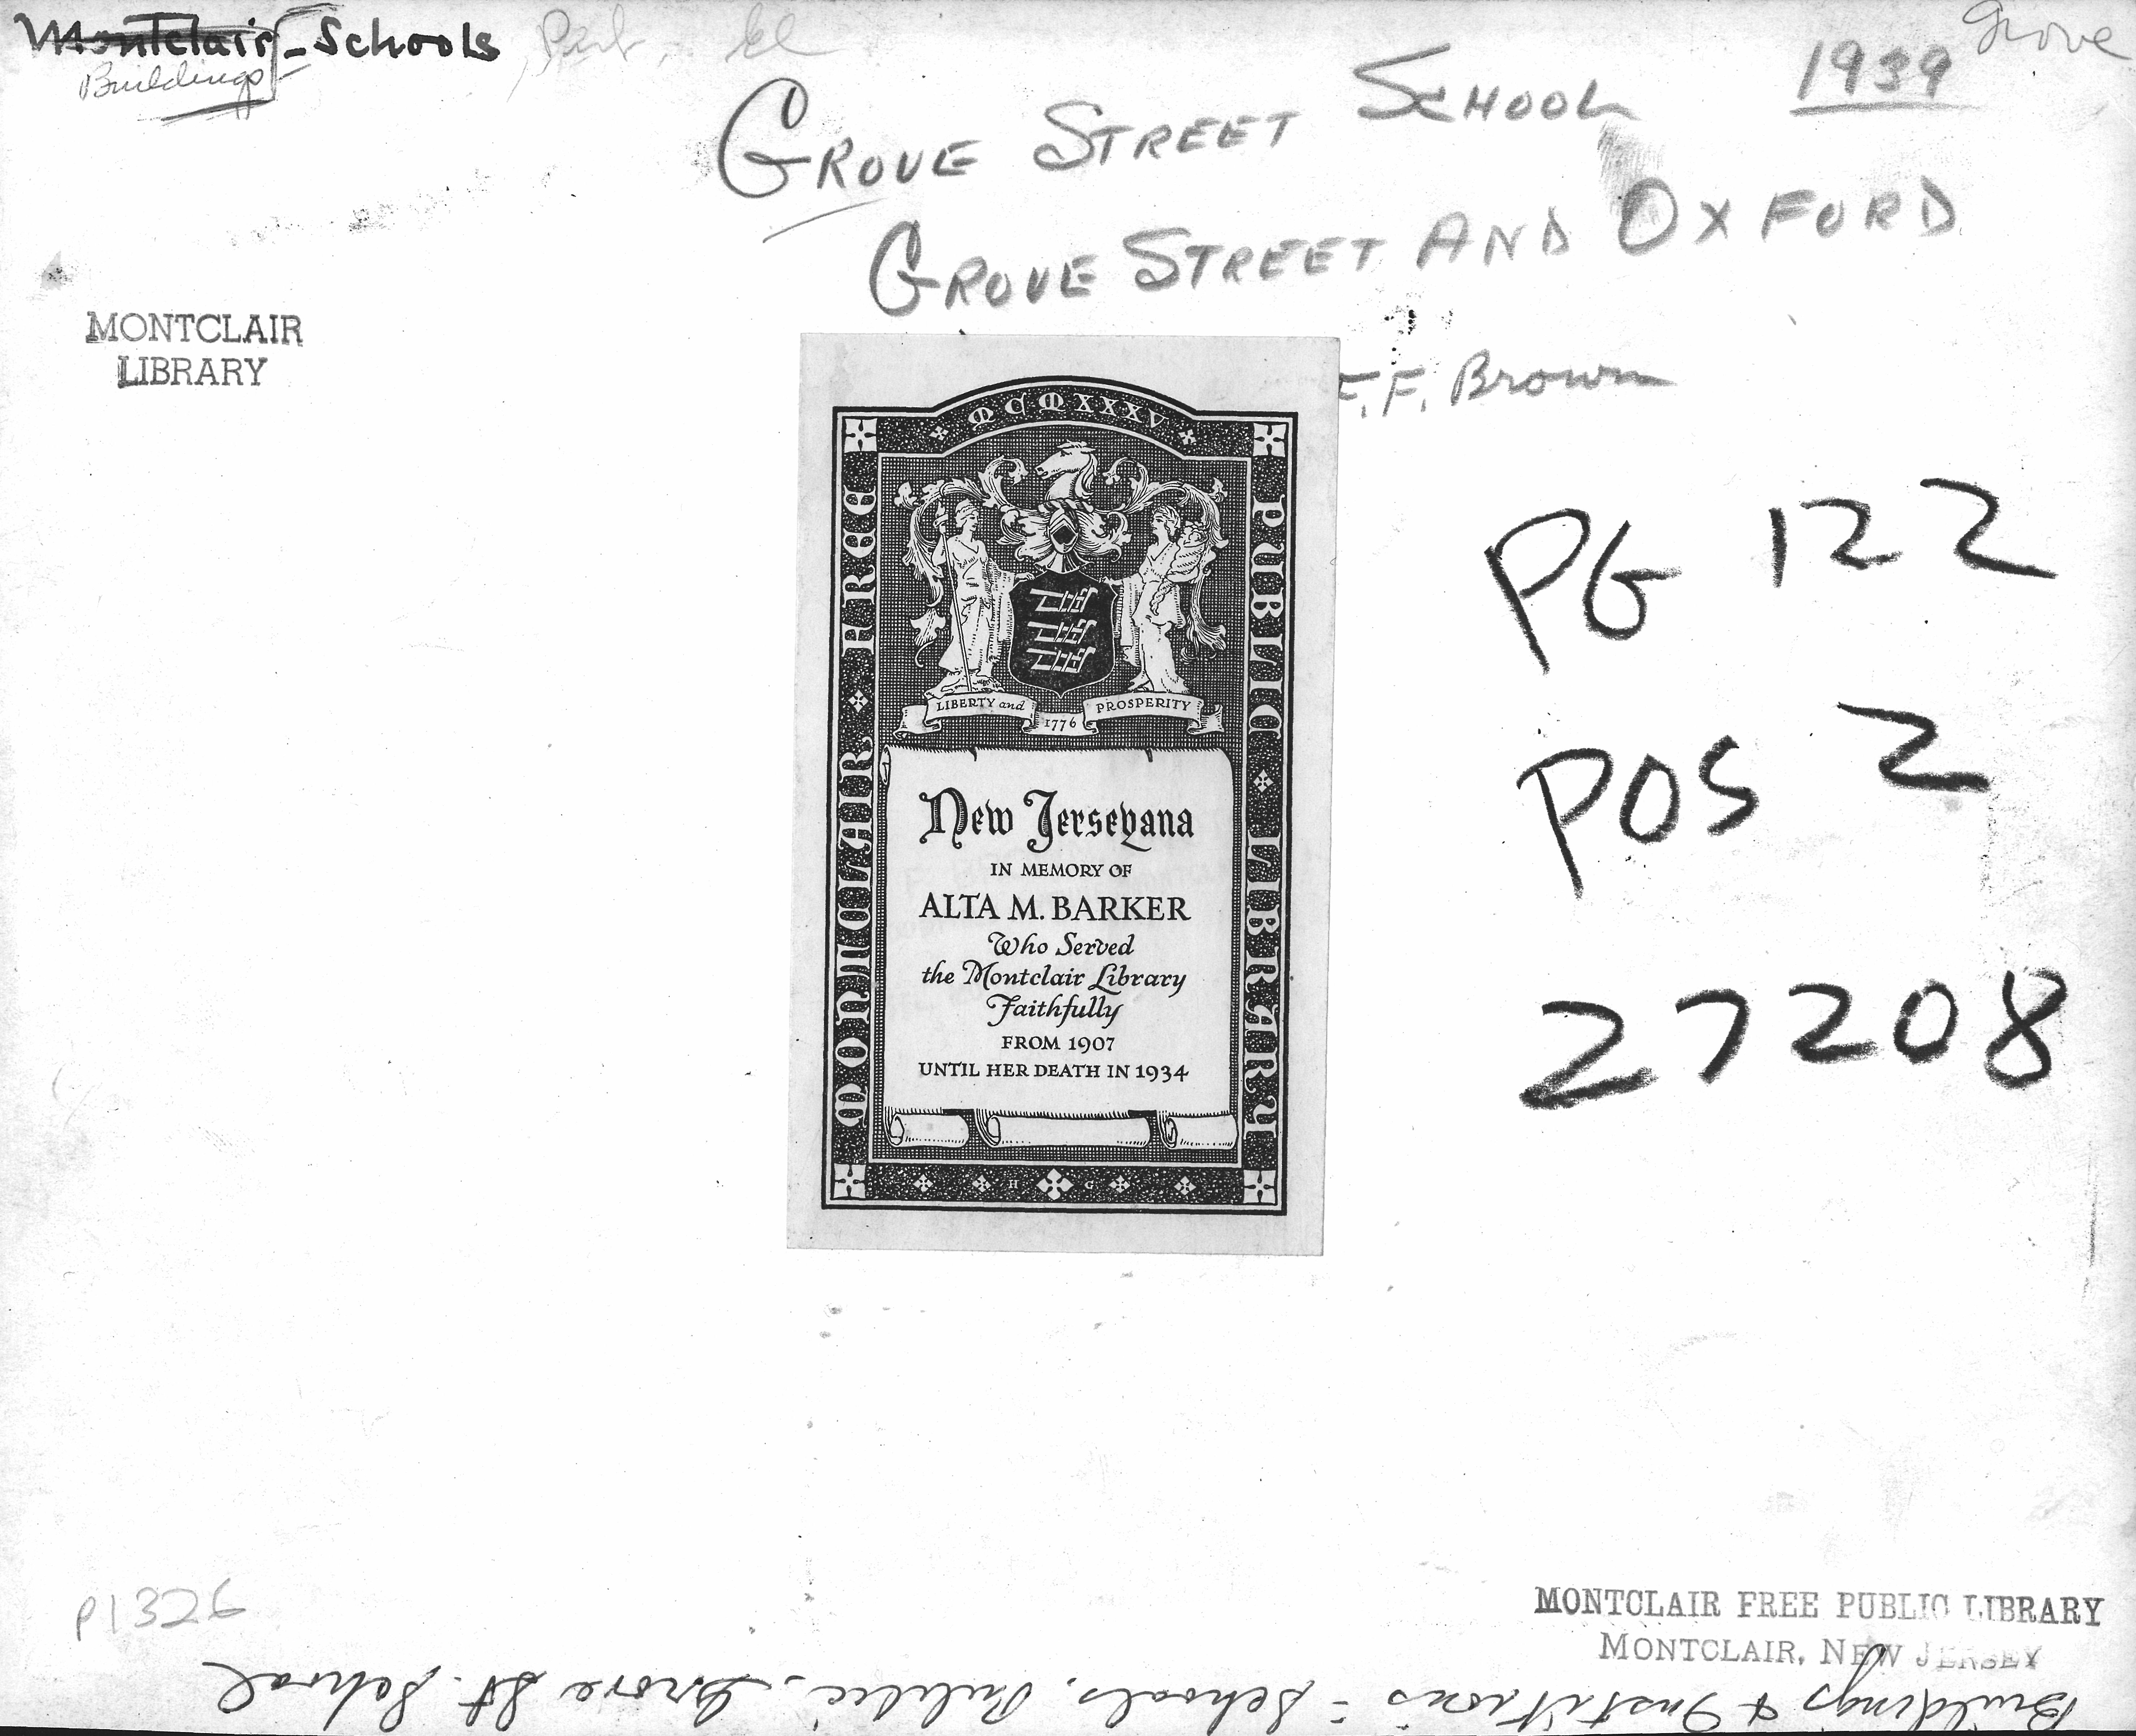 Montclair - Schools
Buildings
Grove
GROVE STREET SCHOOL 1939
GROVE STREET AND OXFORD
F. Brown
MONTCLAIR
LIBRARY
MCMXXXV
MONTCLAIR FREE
PUBLIC LIBRARY
LIBERTY and
1776
PROSPERITY
New Jerseyana
IN MEMORY OF
ALTA M. BARKER
Who Served
the Montclair Library
Faithfully
FROM 1907
UNTIL HER DEATH IN 1934
H G
PG 122
POS 2
27208
P1326
MONTCLAIR FREE PUBLIC LIBRARY
MONTCLAIR, NEW JERSEY
Buildings & Institutions - Schools, Public, Grove St. School